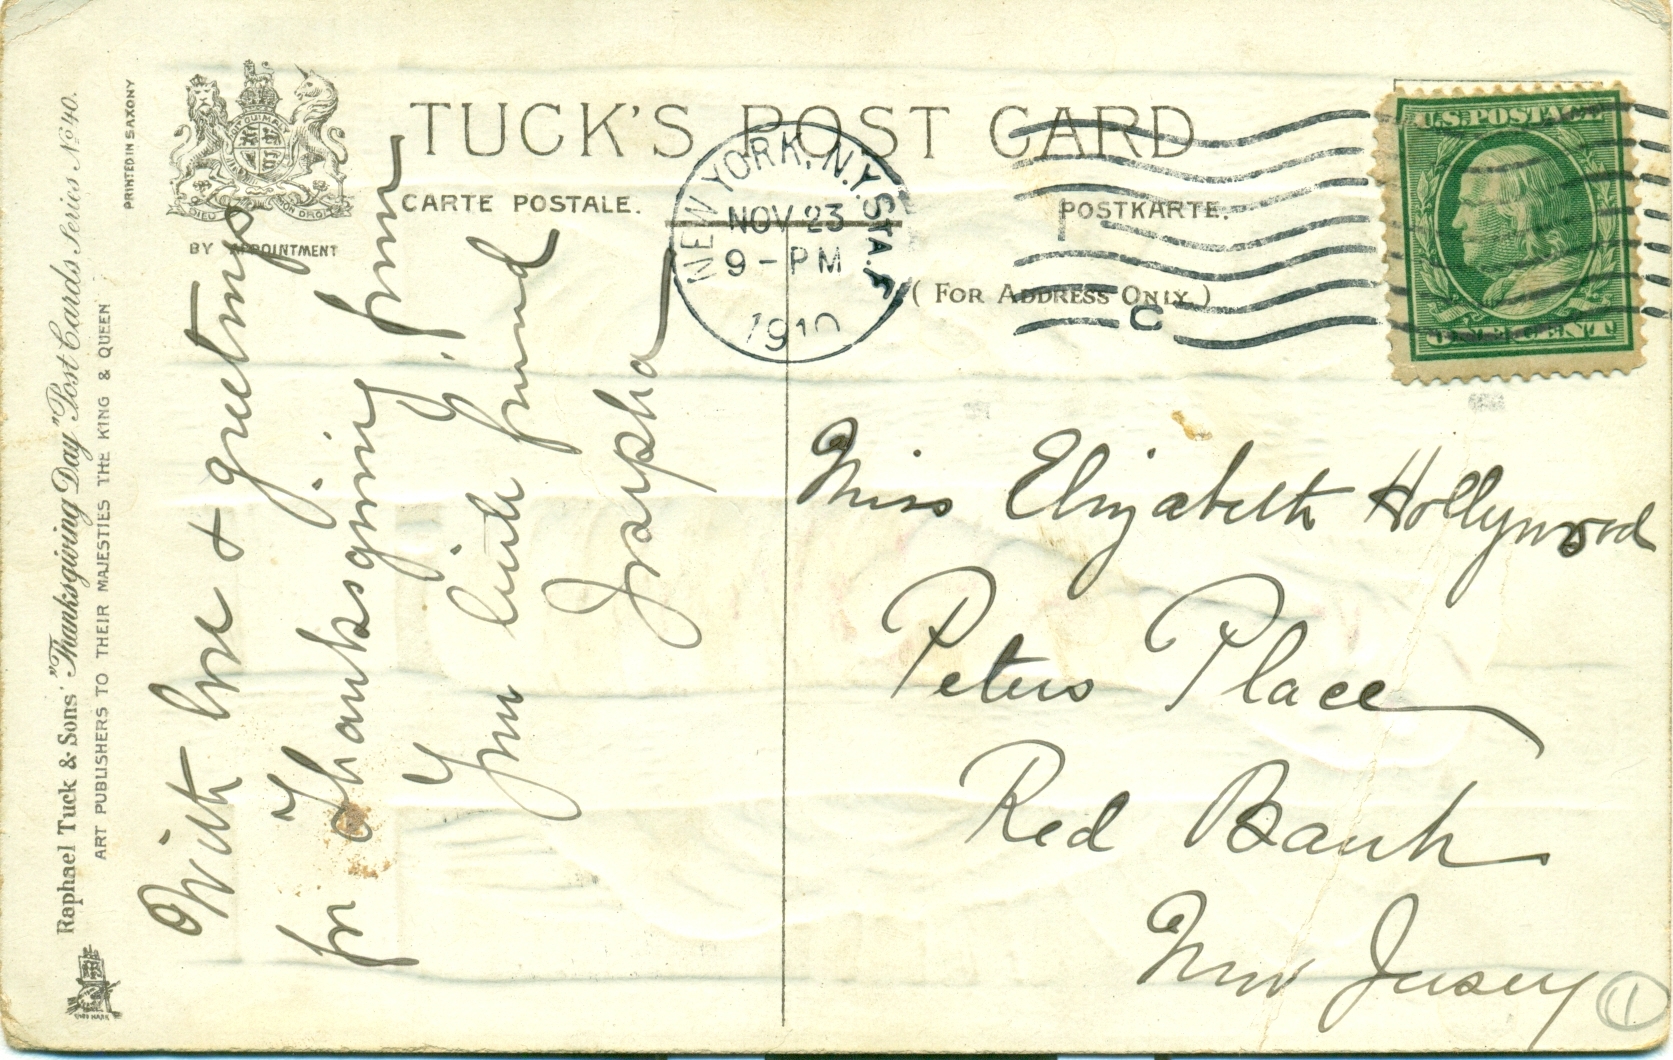 Raphael Tuck & Sons' "Thanksgiving Day" Post Cards Series Nº 40.
ART PUBLISHERS TO THEIR MAJESTIES THE KING & QUEEN
PRINTED IN SAXONY
DIEU ET MON DROIT
BY APPOINTMENT
TUCK'S POST CARD
CARTE POSTALE.
POSTKARTE.
( FOR ADDRESS ONLY )
NEW YORK, N.Y. STA. F
NOV 23
9 - PM
1910
C
U.S. POSTAGE
With love & greetings
for Thanksgiving from
Your little friend
Miss Elizabeth Hollywood
Peters Place
Red Bank
New Jersey
1